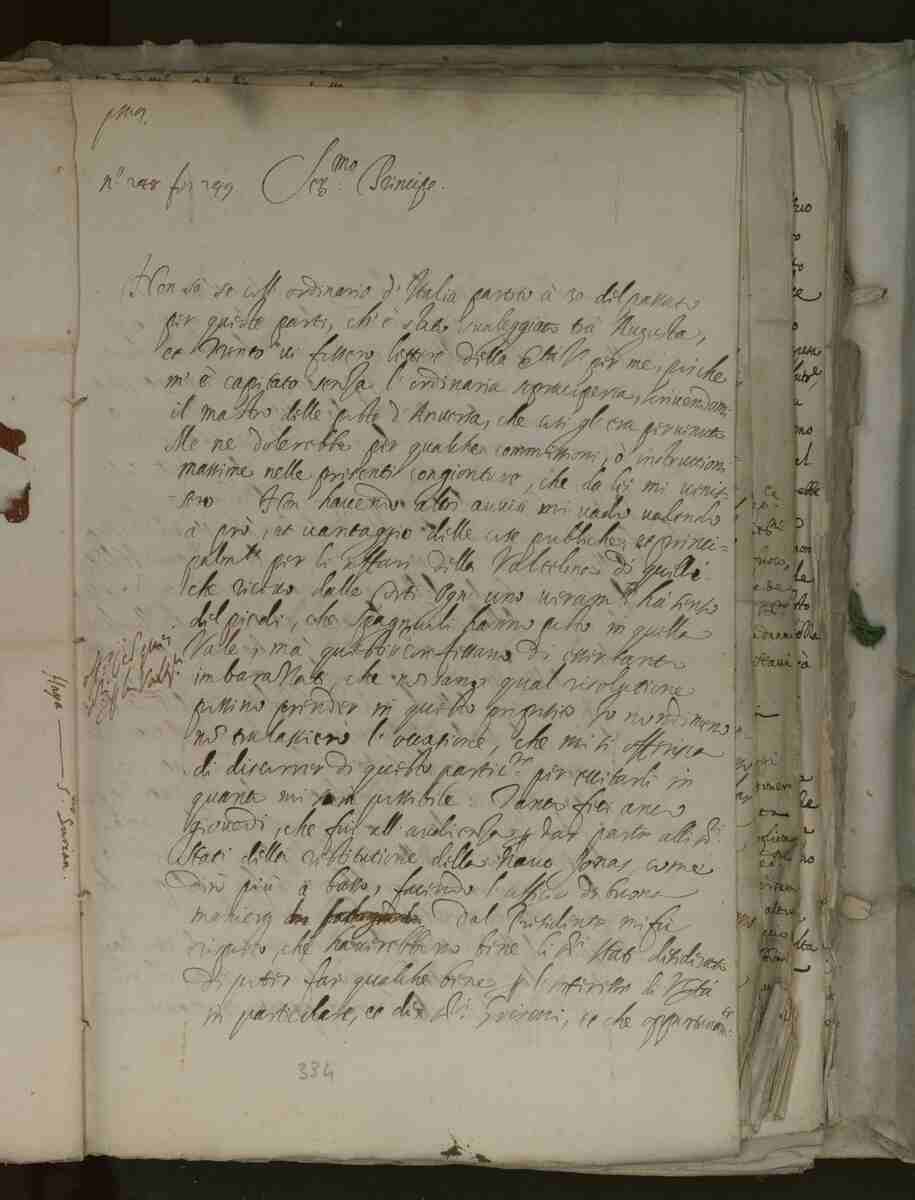 prima
n.º 298 fin 299
Ser.mo Principe.
Non sò se coll' ordinario d' Italia partito à 30 del passato
per queste parti, ch' è stato svaleggiato trà Augusta,
et Trento vi fossero lettere della S.tà V. per me, perche
mi è capitato senza l' ordinaria sopracoperta, scrivendomi
il mastro delle poste d' Anversa, che così gl' era pervenuto
Me ne dolerebbe per qualche commissioni, ò instruttioni
massime nelle presenti congionture, che da lei mi venis=
=sero. Non havendo altri avvisi mi vado valendo
à prò, et vantaggio delle cose publiche, et princi=
palm.te per li affari della Valtelina di quelli
che ricevo dalle Corti. Ogn' uno veram.te hà senso
del piede, che Spagnuoli hanno posto in quella
Valle, mà questi confessano di esser tanto
imbarazzati, che non sano qual risolutione
possino prender in questo proposito. Io nondimeno
non tralascierò l' occasione, che mi si offerisca
di discorrer di questo partic.re per eccitarli in
quanto mi sarà possibile. Tanto feci anco
giovedì, che fui all' audienza per dar parte alli SS.ri
Stati della restitutione della Nave Jonas, come
dirò più à basso, facendo l' officio di buona
maniera dal Presidente mi fù
risposto, che haverebbono bene li SS.ri Stati desiderato
di poter far qualche bene per l' interesse di V. S.tà
in particolare, et di SS.ri Grisoni, et che opportunam.te
Haya
S.r Surian.
334